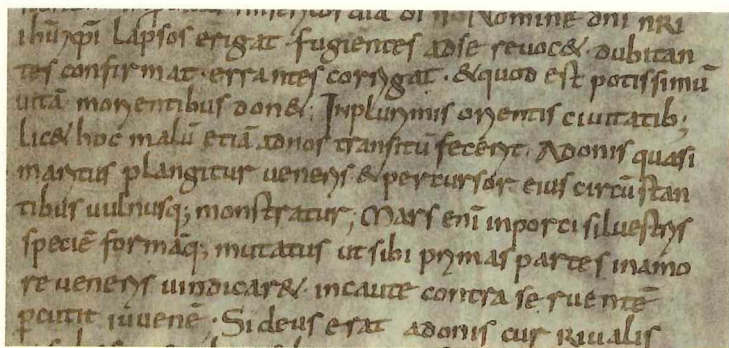 Nomine dni nri
ihū xpi Lapsos erigat fugientes adse revoc& · dubitan
tes confirmat · errantes corrigat · & quod est potissimū
uitā morientibus don&; Inplurimis orientis ciuitatib;
lic& hoc malū etiā adnos transitū fecerit · Adonis quasi
maritus plangitur ueneris & percursor eius circūstan
tibus uulnusq; monstratur; Mars enī inporci siluestris
speciē formāq; mutatus ut sibi primas partes inamo
re ueneris uindicar& · incaute contra se ruentē
ꝑcutit iuuenē · Si deus erat adonis cur riualis